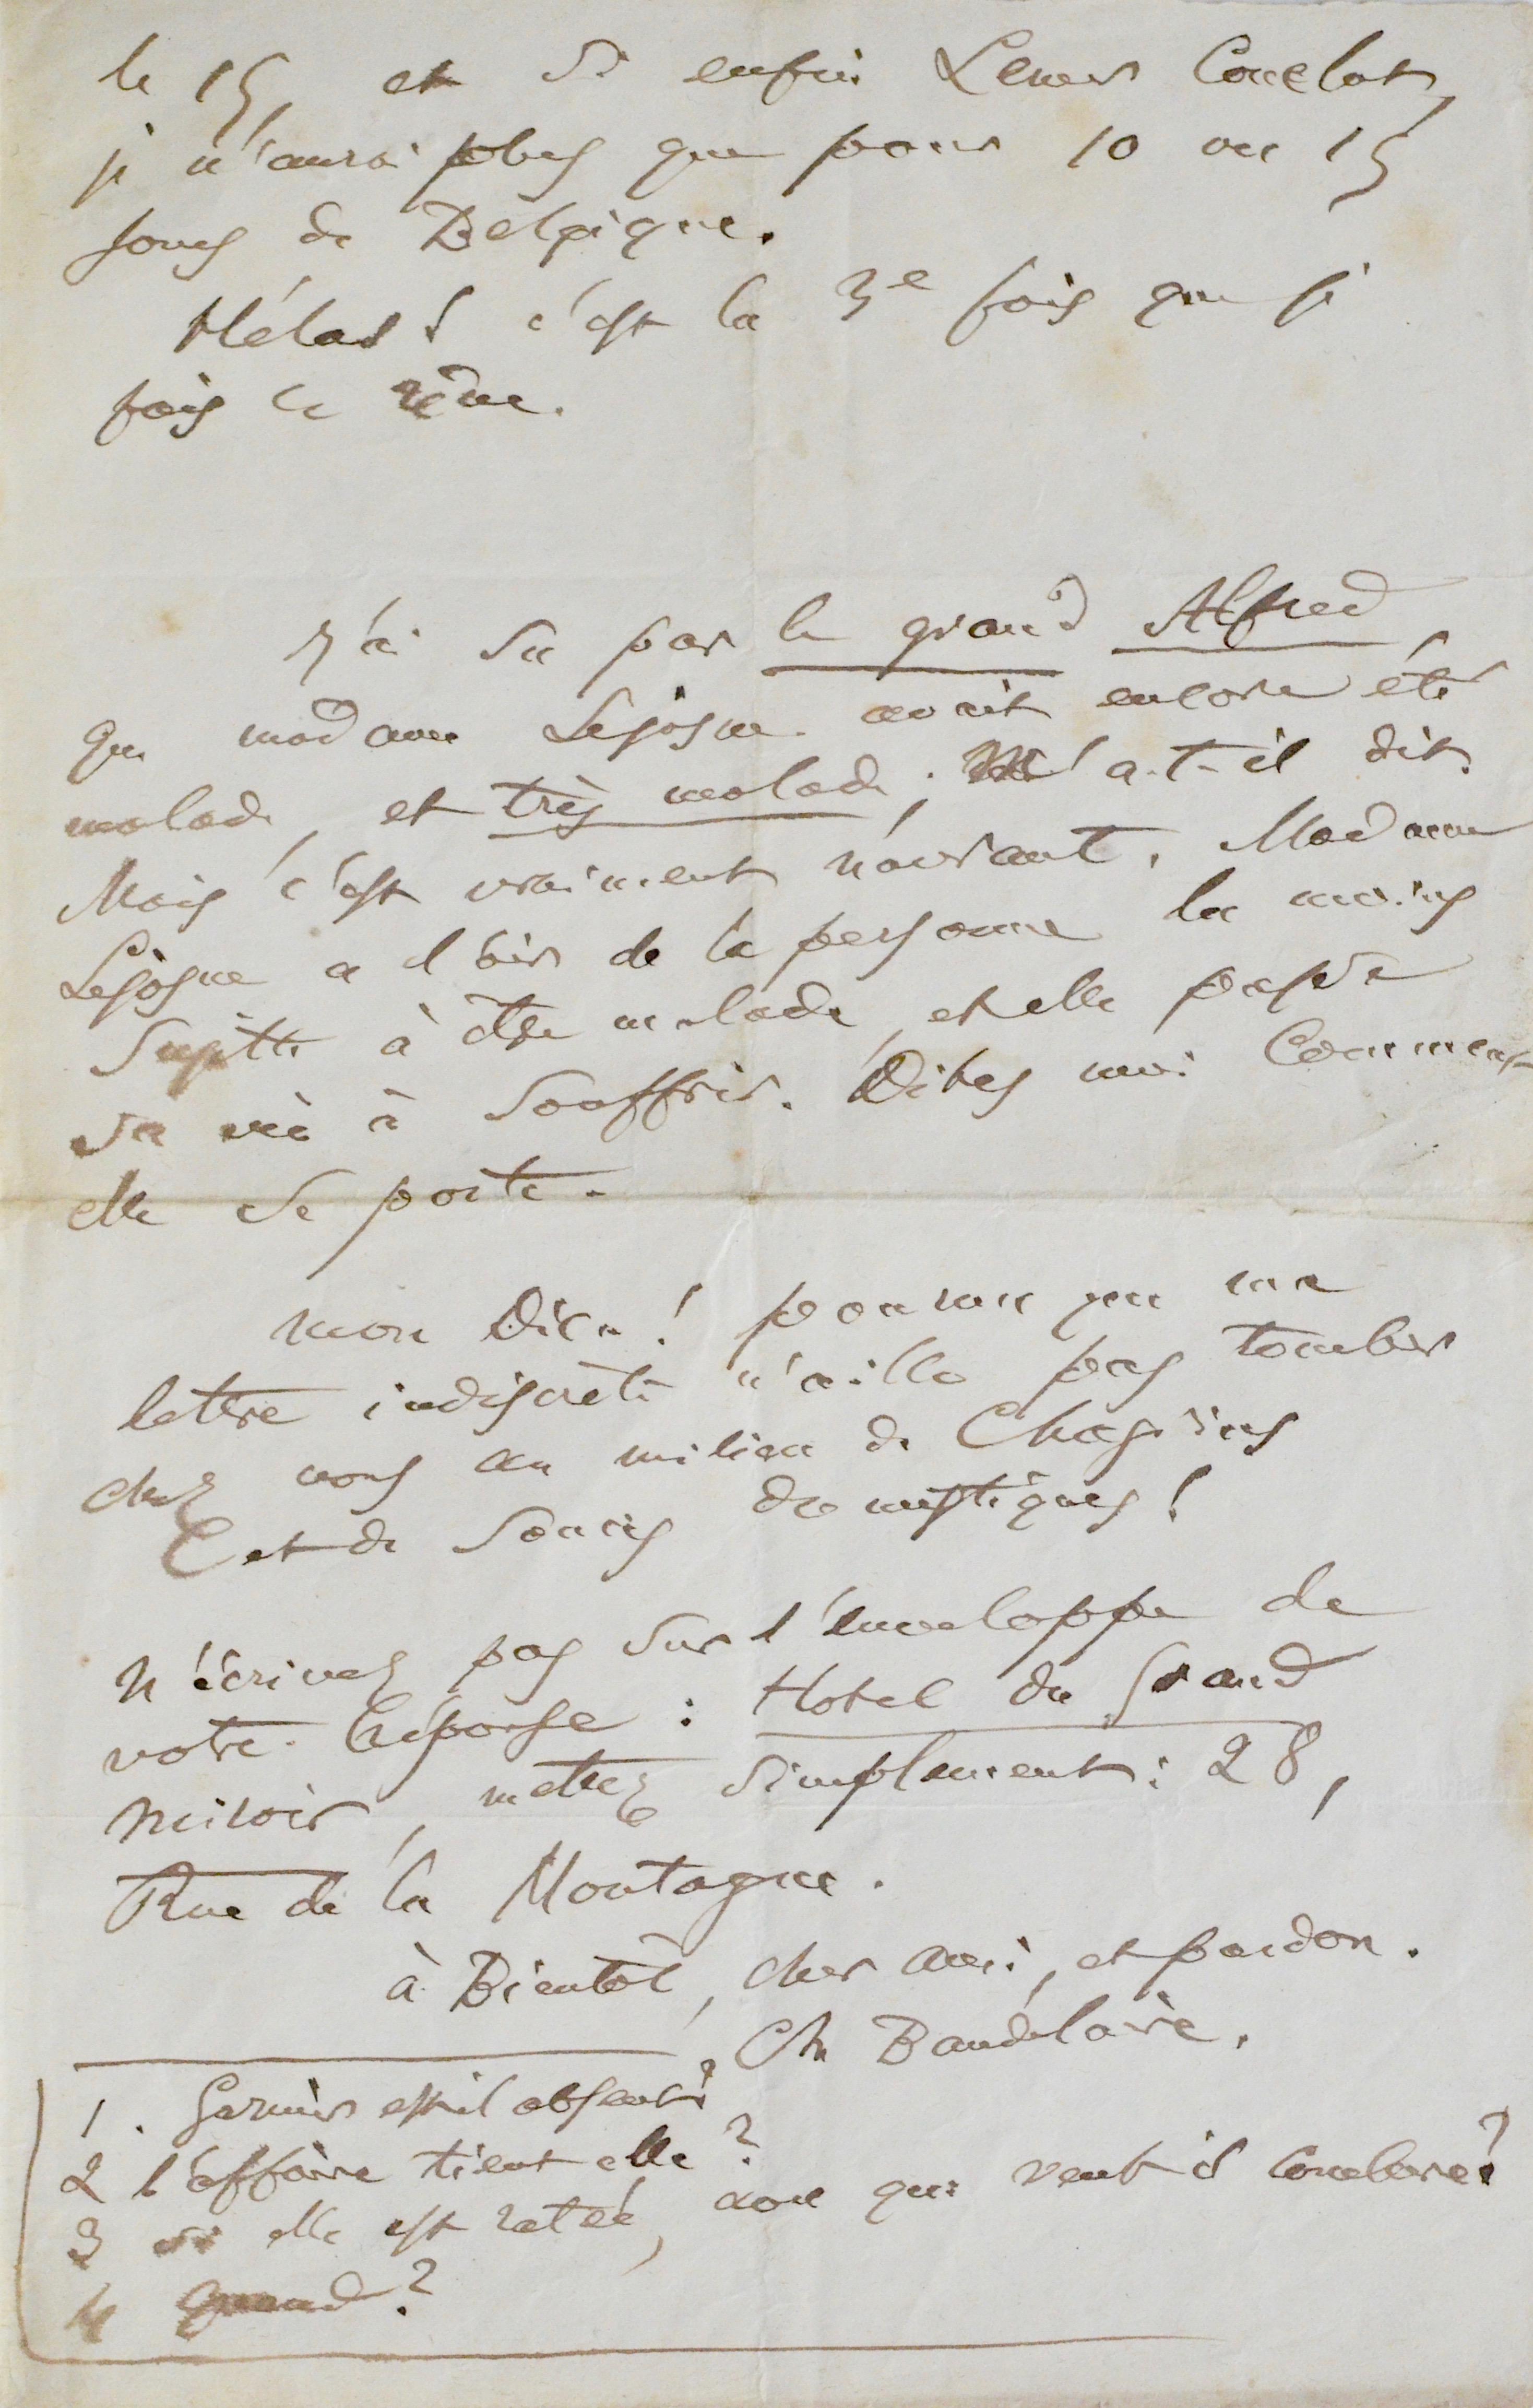 le 15, et si enfin Lemer Conclut,
je n'aurai plus que pour 10 ou 15
jours de Belgique.
Hélas ! c'est la 3e fois que je
fais ce rêve.
J'ai su par le grand Alfred
que madame Lejosne avait encore été
malade, et très malade, m'a-t-il dit.
Mais c'est vraiment navrant. Madame
Lejosne a l'air de la personne la moins
sujette à être malade, et elle passe
sa vie à souffrir. Dites moi Comment
elle se porte.
Mon Dieu ! pourvu que ma
lettre indiscrète n'aille pas tomber
chez vous au milieu de Chagrins
et de soucis domestiques !
N'écrivez pas sur l'enveloppe de
votre réponse : Hotel du Grand
Miroir, mettez simplement : 28,
Rue de la Montagne.
à Bientôt, cher ami, et pardon.
Ch Baudelaire.
1. Garnier est-il absent ?
2 l'affaire tient elle ?
3 si elle est ratée, avec qui veut il conclure ?
4 Quand ?